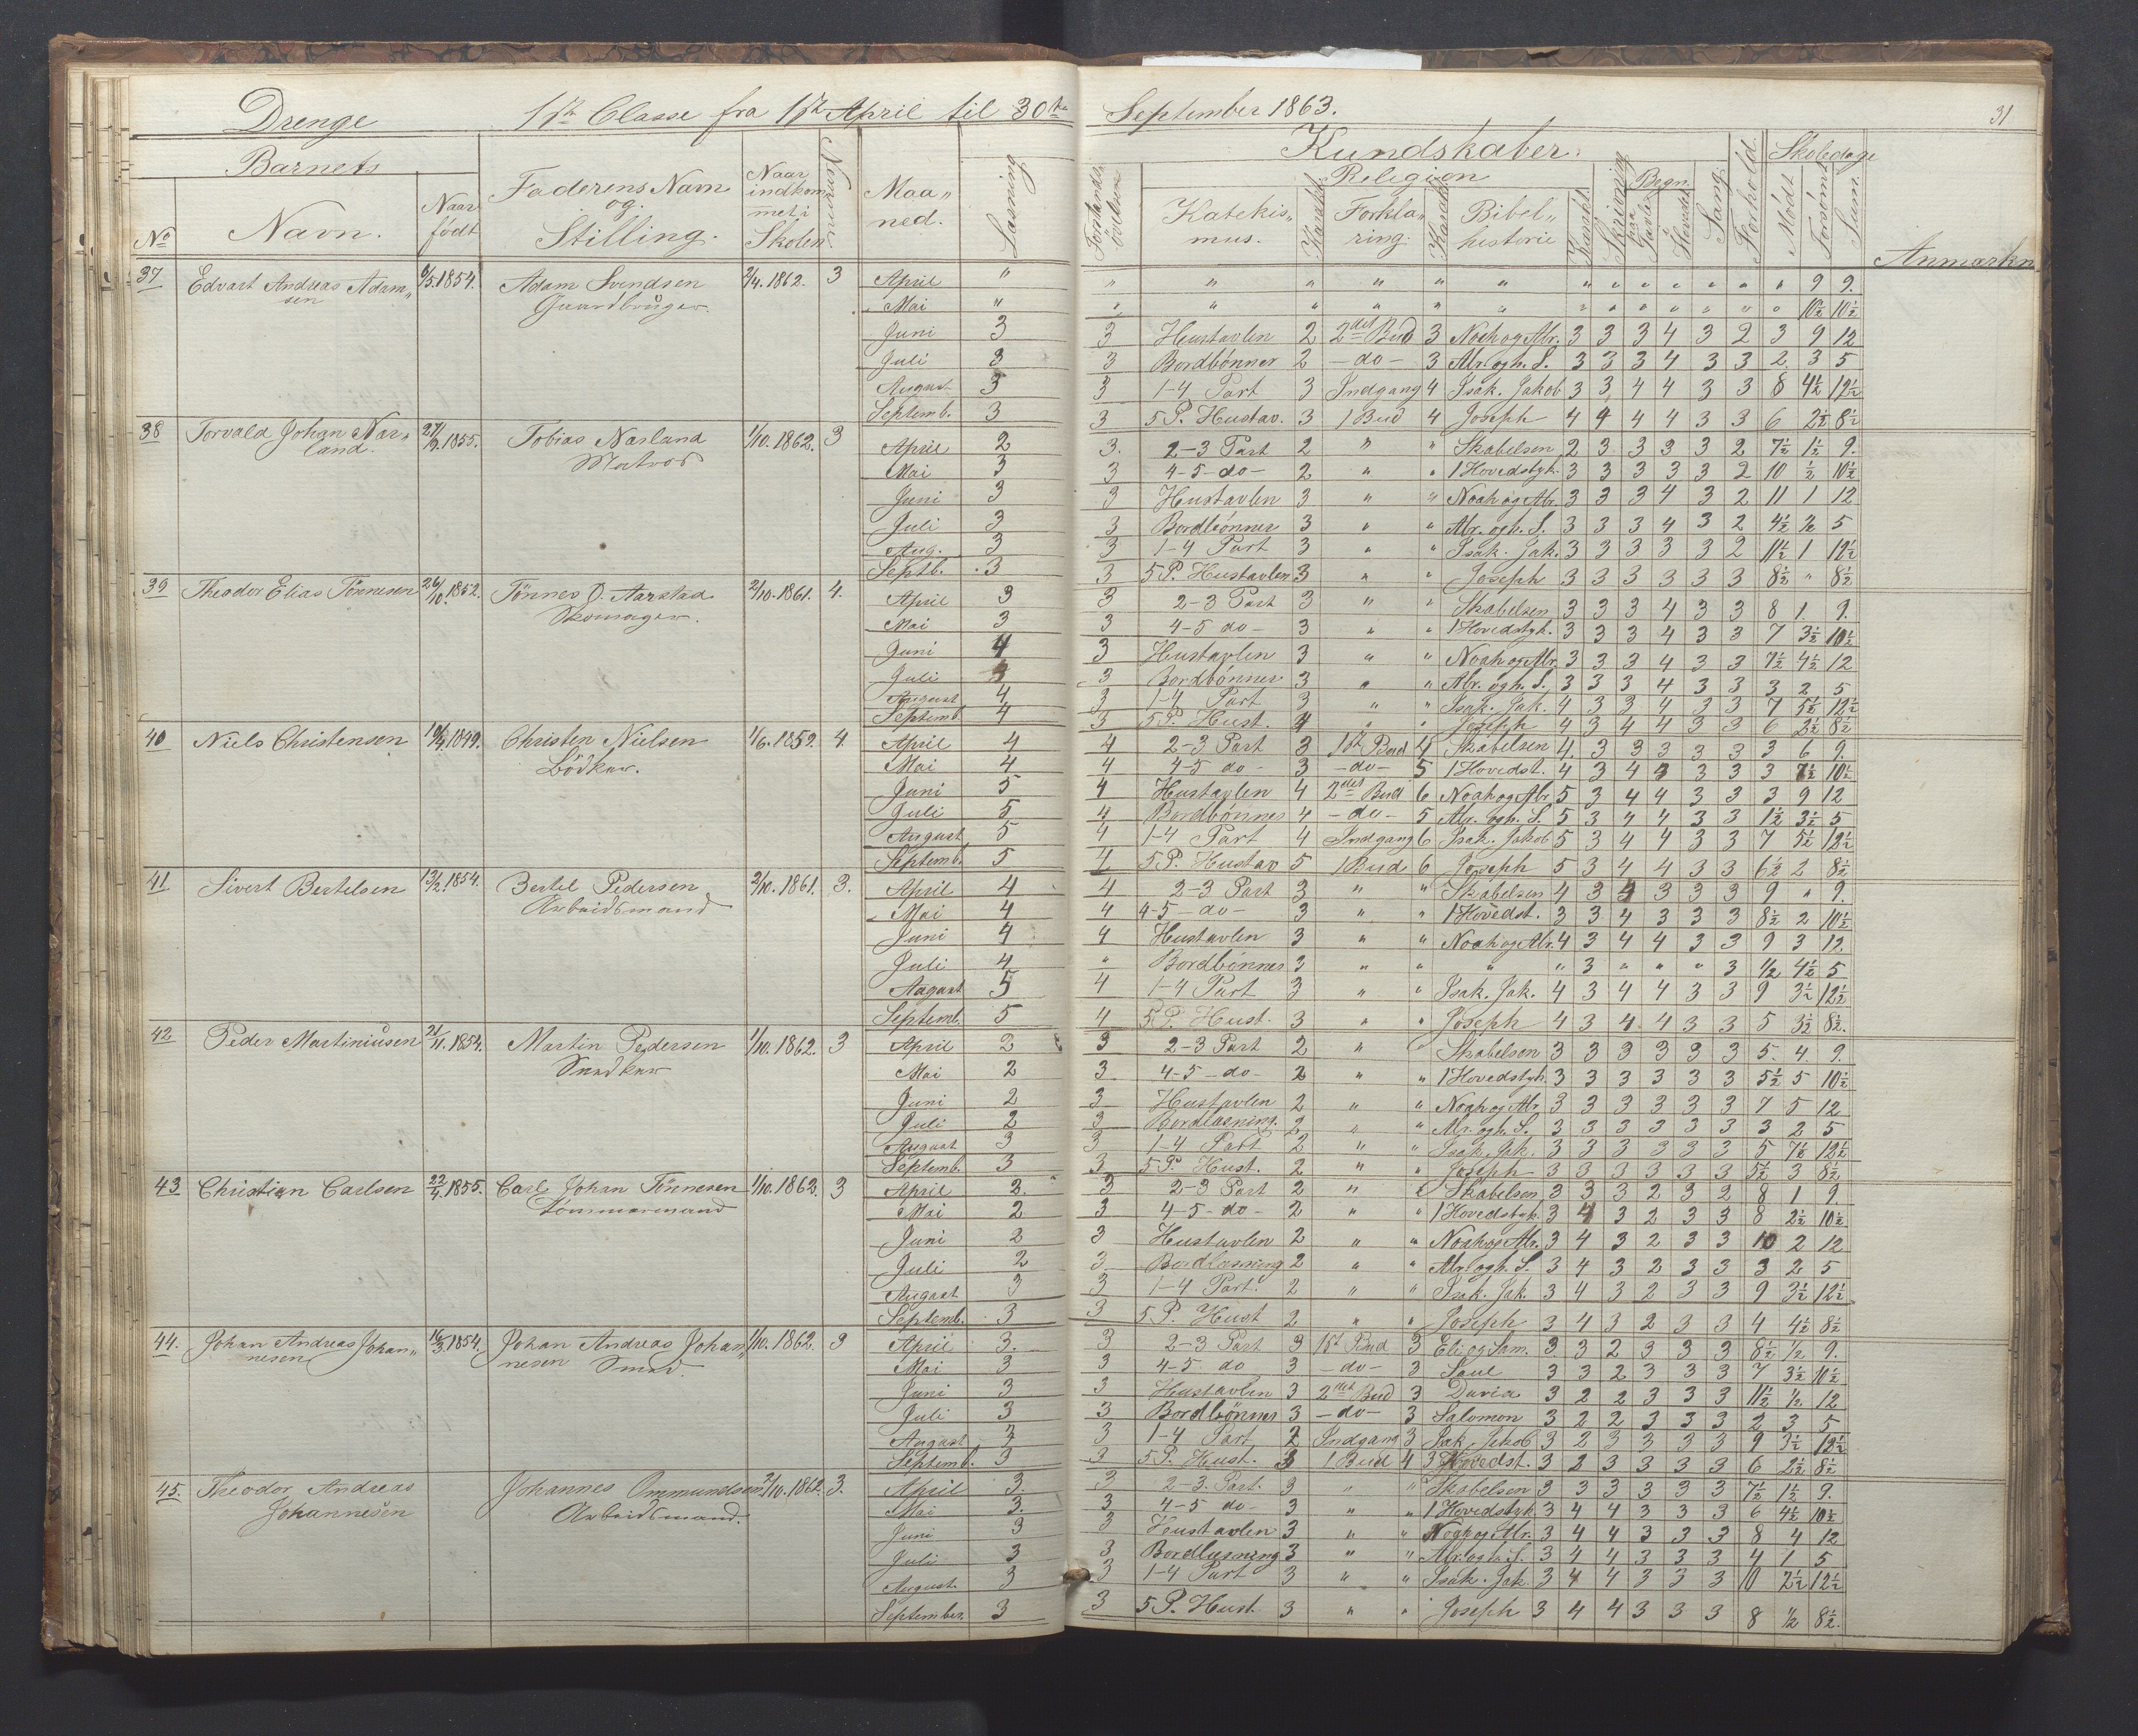 Drenge 1ste Classe fra 1ste April til 30te September 1863. 31
Barnets Faderens Navn og Stilling. Naar indkommet i Skolen Nummer Maaned. Læsning Forstandsøvelser Kundskaber. Forhold. Skoledage Anmærkn
Religion Skrivning Regn. Sang.
No Navn. Naar født Katekismus. Karakt. Forklaring. Karakt. Bibelhistorie Karakt. paa Tavle Hovedet Mødt Forsømt Sum.
37 Edvart Andreas Adamsen 6/5.1854. Adam Svendsen Gaardbruger. 2/4.1862. 3
April " " " " " " " " " " " " " " 9 9.
Mai " " " " " " " " " " " " " " 10½ 10½
Juni 3 3 Hustavlen 2 2det Bud 3 Noah og Abr. 3 3 3 4 3 2 3 9 12
Juli 3 3 Bordbønner 2 -do- 3 Abr. og h. S. 3 3 3 4 3 3 2 3 5
August 3 3 1-4 Part 3 Indgang 4 Isak. Jakob 3 3 4 4 3 3 8 4½ 12½
Septemb. 3 3 5 P. Hustav. 3 1 Bud 4 Joseph 4 4 4 4 3 3 6 2½ 8½
38 Torvald Johan Narland. 27/9.1855. Tobias Narland Matros 1/10.1862. 3
April 2 3. 2-3 Part 2 " " Skabelsen 2 3 3 3 3 2 7½ 1½ 9.
Mai 3 3 4-5-do- 2 " " 1 Hovedstyk. 3 3 3 3 3 2 10 ½ 10½
Juni 3 3 Hustavlen 3 " " Noah og Abr. 3 3 3 4 3 2 11 1 12
Juli 3 3 Bordbønner 3 " " Abr. og h. S. 3 3 3 4 3 2 4½ ½ 5
Aug. 3 3 1-4 Part 3 " " Isak. Jak. 3 3 3 3 3 2 11½ 1 12½
Septb. 3 3 5 P. Hustavlen 3 " " Joseph 3 3 3 3 3 3 8½ " 8½
39 Theodor Elias Tønnesen 26/10.1852. Tønnes O. Aarstad Skomager. 2/10.1861. 4.
April 3 3 2-3 Part 3 " " Skabelsen 3 3 3 4 3 3 8 1. 9.
Mai 3 3 4-5 do- 3 " " 1 Hovedstyk. 3 3 3 4 3 3 7 3½ 10½
Juni 4 3 Hustavlen 3 " " Noah og Abr. 3 3 3 4 3 3 7½ 4½ 12
Juli 3 Bordbønner 3 " " Abr. og h. S. 3 3 3 4 3 3 3 2 5
August 4 3 1-4 Part 3 " " Isak. Jak. 4 3 3 4 3 3 7 5½ 12½
Septemb. 4 3 5 P. Hust. 4 " " Joseph 4 3 4 4 3 3 6 2½ 8½
40 Niels Christensen 1849. Christen Nielsen Bødker. 1/6.1859. 4.
April 4 4 2-3 Part 3 1ste Bud 4 Skabelsen 4. 3 3 3 3 3 3 6 9.
Mai 4 4 4-5 do- 3 -do- 5 1 Hovedst. 4 3 4 3 3 3 3 7½ 10½
Juni 5 4 Hustavlen 4 2det Bud 6 Noah og Abr 5 3 4 4 3 3 3 9 12
Juli 5 4 Bordbønner 4 -do- 5 Abr. og h. S. 5 3 4 4 3 3 1½ 3½ 5
August 5 4 1-4 Part 4 Indgang 6 Isak. Jakob 5 3 4 4 3 3 7 5½ 12½
Septemb. 5 4 5 P. Hustav 5 1 Bud 6 Joseph 5 3 4 4 3 3 6½ 2 8½
41 Sivert Bertelsen 13/2.1854. Bertel Pedersen Arbeidsmand 2/10.1861. 3.
April 4 4 2-3 Part 3 " " Skabelsen 4 3 4 3 3 3 9 " 9.
Mai 4 4 4-5-do- 3 " " 1 Hovedst. 3 3 4 3 3 3 8½ 2 10½
Juni 4 4 Hustavlen 3 " " Noah og Abr. 4 3 4 4 3 3 9 3 12.
Juli 4 " Bordbønner 3 " " " " 3 " " " 3 ½ 4½ 5
August 5 4 1-4 Part 3 " " Isak. Jak. 4 3 4 4 3 3 9 3½ 12½
Septemb. 5 4 5 P. Hust. 3 " " Joseph 4 3 4 4 3 3 5 3½ 8½.
42 Peder Martiniusen 21/11.1854. Martin Pedersen Snedker 1/10.1862. 3
April 2 3 2-3 Part 2 " " Skabelsen 3 3 3 3 3 3 5. 4. 9.
Mai 2 3 4-5-do- 2 " " 1 Hovedstyk. 3 3 3 3 3 3 5½ 5 10½
Juni 2 3 Hustavlen 2 " " Noah og Abr 3 3 3 3 3 3 7 5 12
Juli 2 3 Bordlæsning. 2 " " Abr. og h. S. 3 3 3 3 3 3 3 2 5
August 3 3 1-4 Part 2 " " Isak. Jak. 3 3 3 3 3 3 5 7½ 12½
Septemb. 3 3 5 P. Hust. 2 " " Joseph 3 3 3 3 3 3 5½ 3 8½
43 Christian Carlsen 22/4.1855. Carl Johan Tønnesen Tømmermand 1/10.1862. 3
April 2. 3 2-3 Part 2 " " Skabelsen 3 3 3 2 3 2 8 1 9.
Mai 2 3 4-5-do- 2 " " 1 Hovedstyk. 3 4 3 2 3 3 8 2½ 10½
Juni 2 3 Hustavlen 2 " " Noah og Abr. 3 4 3 2 3 3 10 2 12
Juli 2 3 Bordlæsning 2 " " Abr. og h. S. 3 4 3 2 3 3 3 2 5
August 3 3 1-4 Part. 2 " " Isak. Jak. 3 4 3 2 3 3 9 3½ 12½
Septemb. 3 3 5 P. Hust 2 " " Joseph 3 4 3 2 3 3 4 4½ 8½
44. Johan Andreas Johannesen 16/3.1854. Johan Andreas Johannesen Smed. 1/10.1862. 3
April 3. 3 2-3 Part 3 1ste Bud 3 Eli og Sam. 3 3 2 3 3 3 8½ ½ 9.
Mai 3 3 4-5 do 3 -do- 3 Saul 3 3 2 3 3 3 7 3½ 10½
Juni 3 3 Hustavlen 3 2det Bud 3 David 3 2 2 3 3 3 11½ ½ 12
Juli 3 3 Bordbønner 3 -do- 3 Salomon 3 2 2 3 3 3 2 3 5
August 3 3 1-4 Part 2 Indgang 3 Isak. Jakob 3 2 3 3 3 3 9 3½ 12½
Septemb. 3 3 5 P. Hust. 3 1 Bud 4 3 Hovedst. 3 2 3 3 3 3 6 2½ 8½
45. Theodor Andreas Johannesen Johannes Ommundsen Arbeidsmand. 2/10.1862. 3.
April 3. 3 2-3. Part. 3 " " Skabelsen 3 3 3 3 3 3 7½ 1½ 9.
Mai 3. 3 4-5 do- 3 " " 1 Hovedstyk. 3 4 4 3 3 3 6 4½ 10½
Juni 3 3 Hustavlen 3 " " Noah og Abr. 3 4 4 3 3 3 8 4 12
Juli 3 3 Bordlæsning 3 " " Abr. og h. S. 3 4 4 3 3 3 4 1 5
August. 3 3 1-4 Part 3 " " Isak. Jak. 3 4 4 3 3 3 10 2½ 12½
September. 3 3 5 P. Hust. 3 " " Joseph 3 4 4 3 3 3 8 ½ 8½.